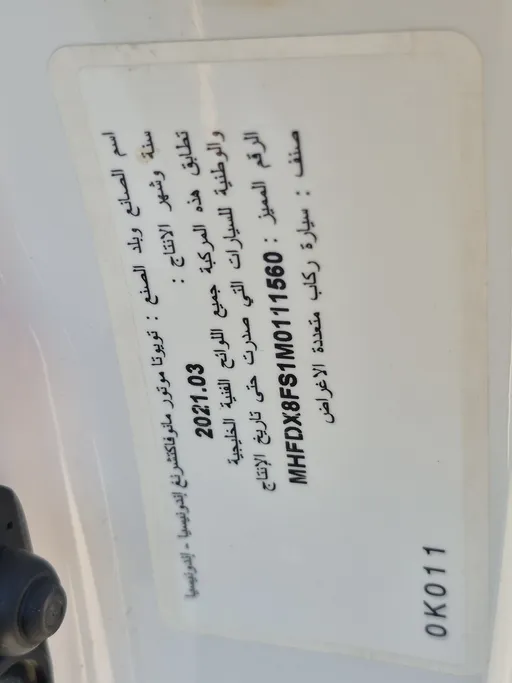 اسم الصانع وبلد الصنع : تويوتا موتور مانوفاكتشرنغ إندونيسيا - إندونيسيا
سنة وشهر الانتاج : 2021.03
تطابق هذه المركبة جميع اللوائح الفنية الخليجية
والوطنية للسيارات التي صدرت حتى تاريخ الإنتاج
الرقم المميز : MHFDX8FS1M0111560
صنف : سيارة ركاب متعددة الاغراض
0K011